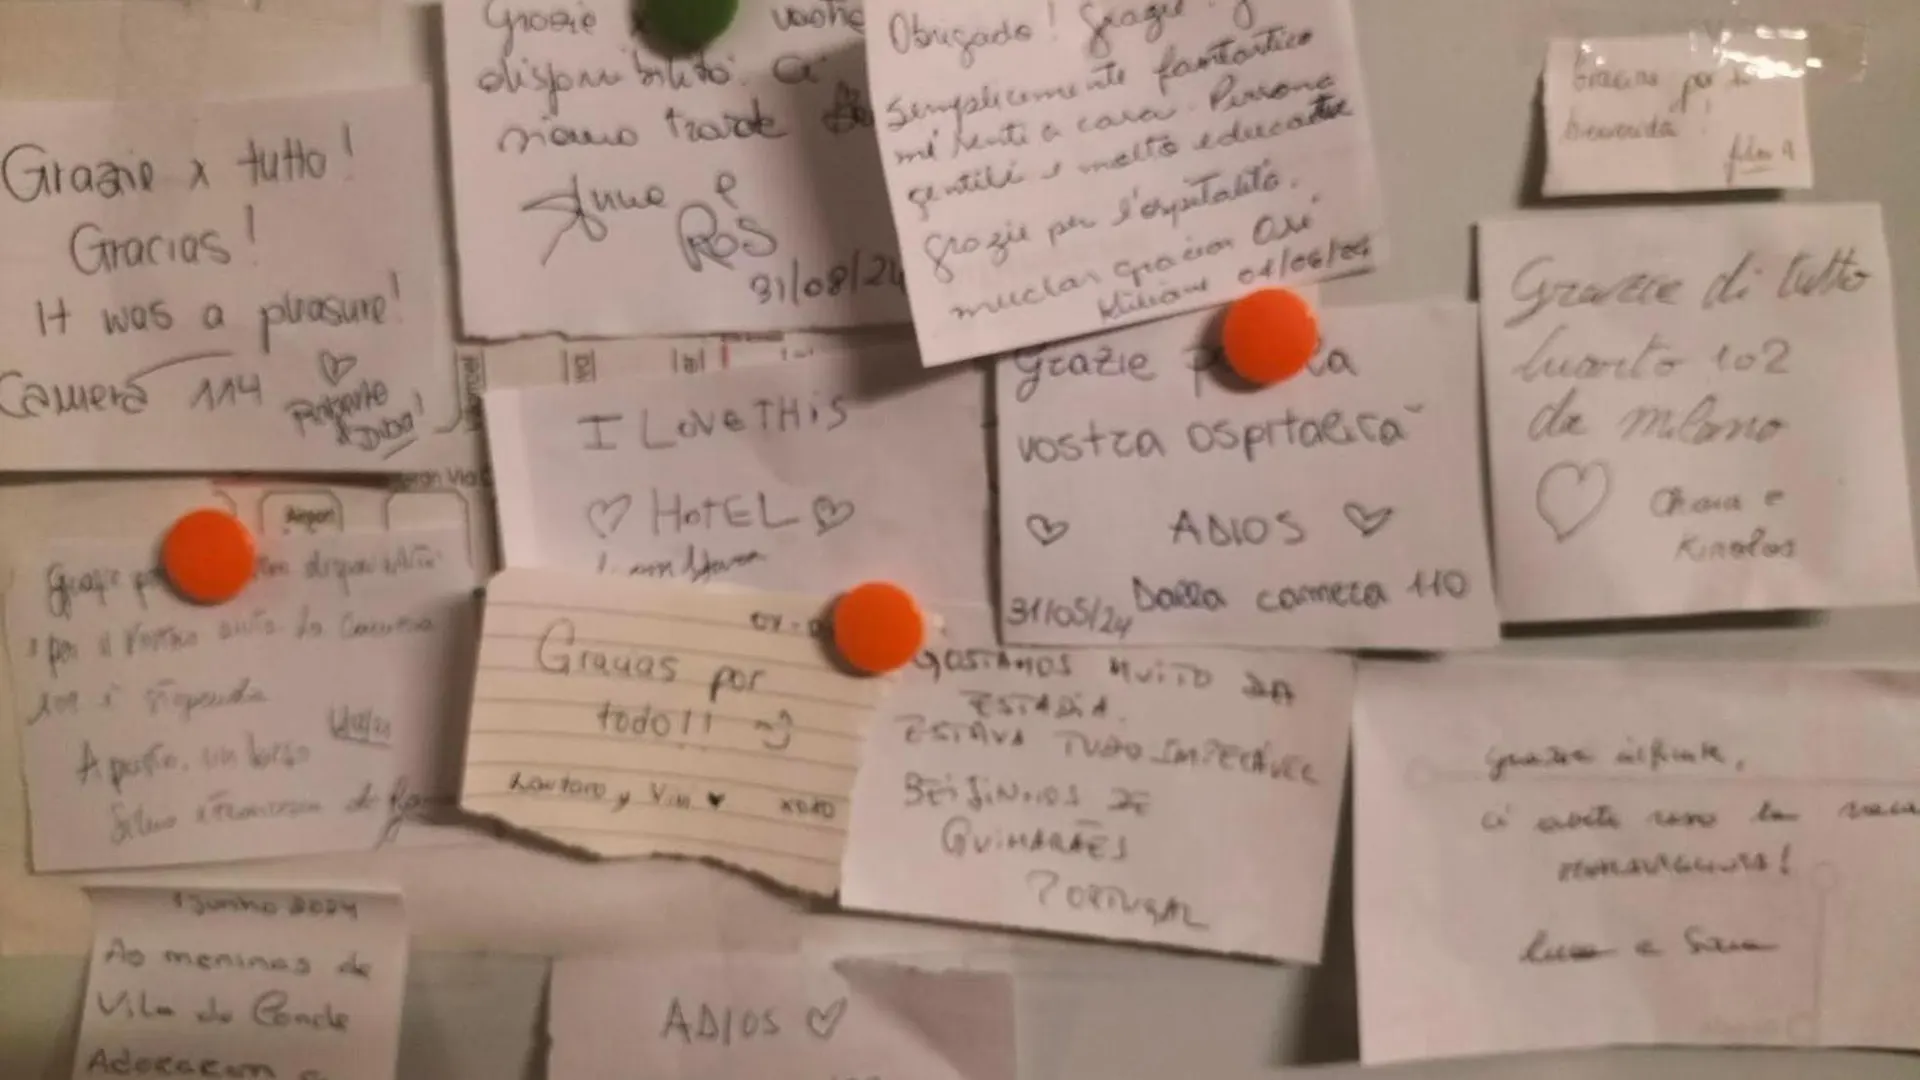 Grazie x tutto!
Gracias!
It was a pleasure!
Camera 114
Grazie
vostre
disponibilità. Ci
siamo
Anna e
Ros
31/08/24
Obrigado! Grazie!
Semplicemente fantastico
mi senti a casa. Persone
gentili e molto educate
grazie per l'ospitalità.
muchas gracias
01/06/24
Gracias por
bienvenida!
Grazie di tutto
102
da milano
e
Kirolos
I LOVE THIS
HOTEL
Grazie la
vostra ospitalità
ADIOS
31/05/24 Dalla camera 110
Airport
Gran Via
Grazie
A presto, un bacio
Gracias por
todo!!
Lautaro y
xoxo
GOSTAMOS MUITO DA
ESTADIA.
ESTAVA TUDO IMPECÁVEL
BEIJINHOS DE
GUIMARÃES
PORTUGAL
Grazie infinite,
ci avete reso la
Luca e Sara
1 Junho 2024
As meninas de
Vila do Conde
Adoraram
ADIOS